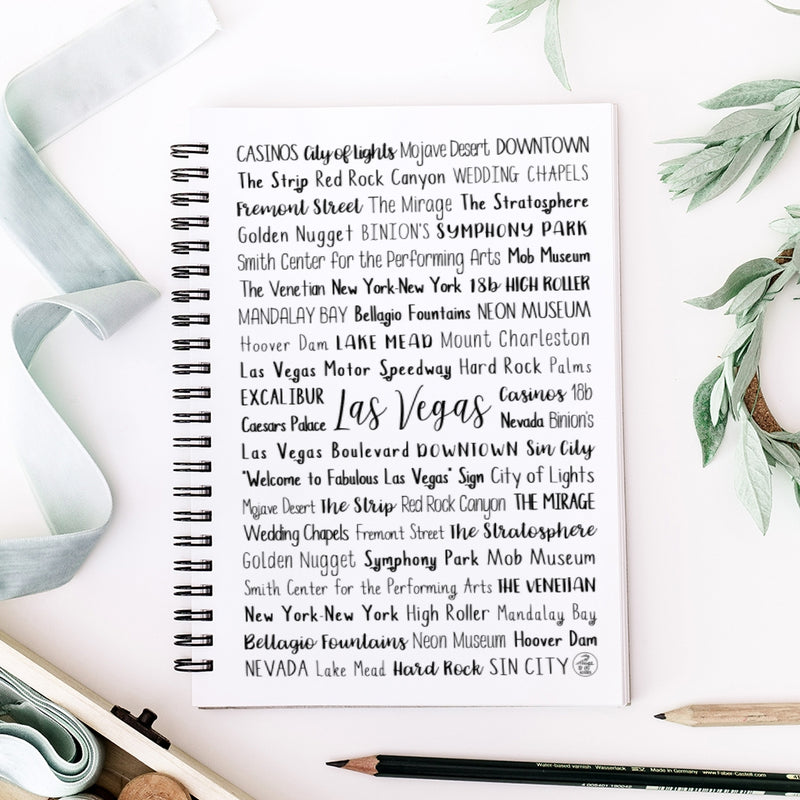 CASINOS City of Lights Mojave Desert DOWNTOWN
The Strip Red Rock Canyon WEDDING CHAPELS
Fremont Street The Mirage The Stratosphere
Golden Nugget BINION'S SYMPHONY PARK
Smith Center for the Performing Arts Mob Museum
The Venetian New York-New York 18b HIGH ROLLER
MANDALAY BAY Bellagio Fountains NEON MUSEUM
Hoover Dam LAKE MEAD Mount Charleston
Las Vegas Motor Speedway Hard Rock Palms
EXCALIBUR
Caesars Palace
Las Vegas
Casinos 18b
Nevada Binion's
Las Vegas Boulevard DOWNTOWN Sin City
"Welcome to Fabulous Las Vegas" Sign City of Lights
Mojave Desert The Strip Red Rock Canyon THE MIRAGE
Wedding Chapels Fremont Street The Stratosphere
Golden Nugget Symphony Park Mob Museum
Smith Center for the Performing Arts THE VENETIAN
New York-New York High Roller Mandalay Bay
Bellagio Fountains Neon Museum Hoover Dam
NEVADA Lake Mead Hard Rock SIN CITY
Water-based varnish Wasserlack Made in Germany www.Faber-Castell.com